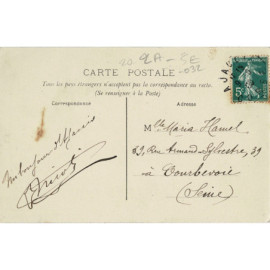 20 2A - SE
-032
CARTE POSTALE
Tous les pays étrangers n'acceptent pas la correspondance au recto.
(Se renseigner à la Poste)
Correspondance
Adresse
AJA
5
Mlle Maria Hamel
69, Rue Armand-Sylvestre, 39
à Courbevoie
(Seine)
Un bonjour d'